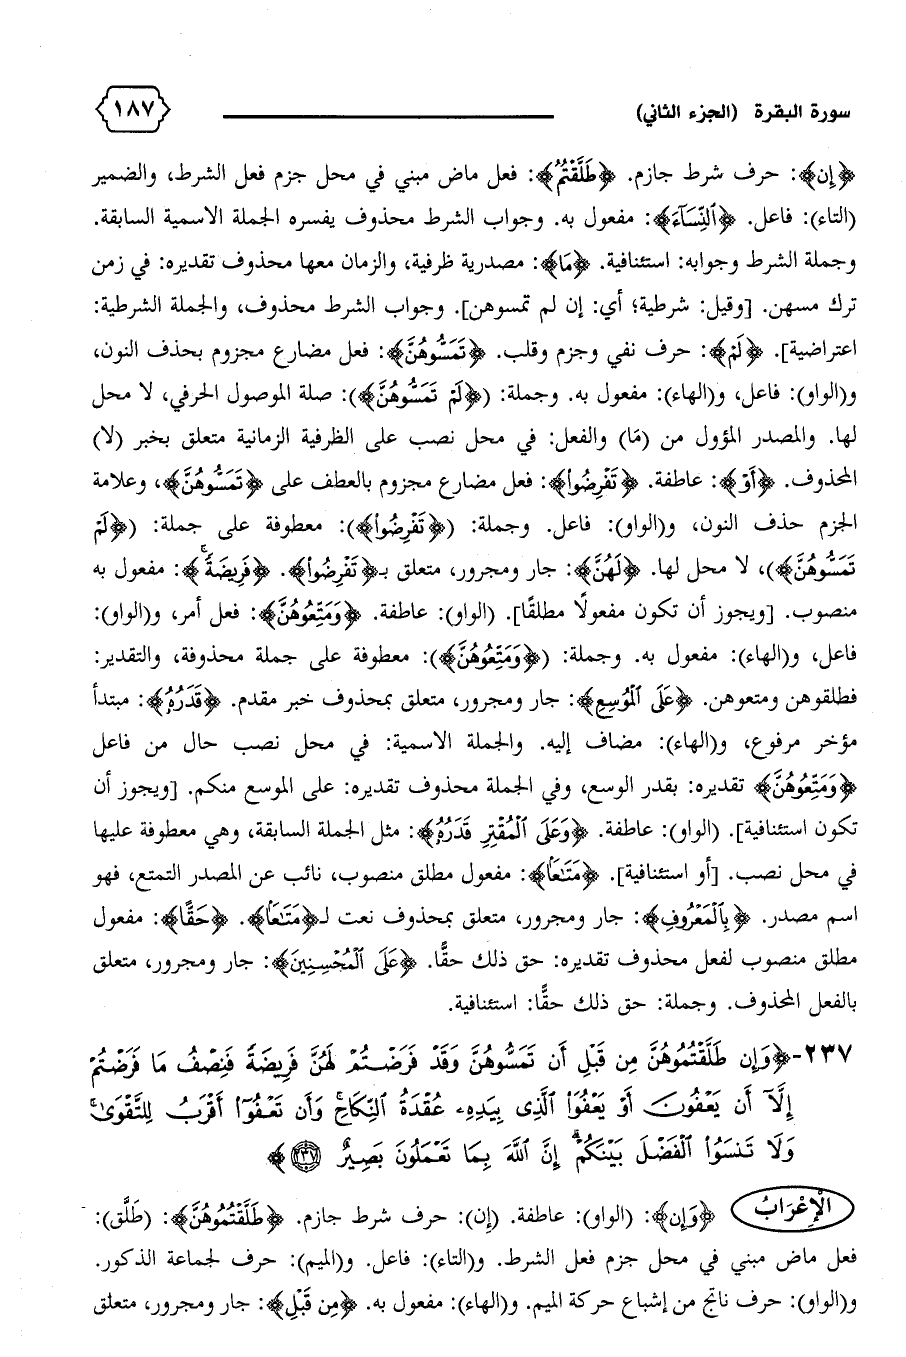 سورة البقرة (الجزء الثاني) ١٨٧
﴿إِن﴾: حرف شرط جازم. ﴿طَلَّقْتُمُ﴾: فعل ماض مبني في محل جزم فعل الشرط، والضمير
(التاء): فاعل. ﴿ٱلنِّسَآءَ﴾: مفعول به. وجواب الشرط محذوف يفسره الجملة الاسمية السابقة.
وجملة الشرط وجوابه: استئنافية. ﴿مَا﴾: مصدرية ظرفية، والزمان معها محذوف تقديره: في زمن
ترك مسهن. [وقيل: شرطية؛ أي: إن لم تمسوهن]. وجواب الشرط محذوف، والجملة الشرطية:
اعتراضية]. ﴿لَمْ﴾: حرف نفي وجزم وقلب. ﴿تَمَسُّوهُنَّ﴾: فعل مضارع مجزوم بحذف النون،
و(الواو): فاعل، و(الهاء): مفعول به. وجملة: (﴿لَمْ تَمَسُّوهُنَّ﴾): صلة الموصول الحرفي، لا محل
لها. والمصدر المؤول من (مَا) والفعل: في محل نصب على الظرفية الزمانية متعلق بخبر (لا)
المحذوف. ﴿أَوْ﴾: عاطفة. ﴿تَفْرِضُوا۟﴾: فعل مضارع مجزوم بالعطف على ﴿تَمَسُّوهُنَّ﴾، وعلامة
الجزم حذف النون، و(الواو): فاعل. وجملة: (﴿تَفْرِضُوا۟﴾): معطوفة على جملة: (﴿لَمْ
تَمَسُّوهُنَّ﴾)، لا محل لها. ﴿لَهُنَّ﴾: جار ومجرور، متعلق بـ﴿تَفْرِضُوا۟﴾. ﴿فَرِيضَةً ۚ﴾: مفعول به
منصوب. [ويجوز أن تكون مفعولًا مطلقًا]. (الواو): عاطفة. ﴿وَمَتِّعُوهُنَّ﴾: فعل أمر، و(الواو):
فاعل، و(الهاء): مفعول به. وجملة: (﴿وَمَتِّعُوهُنَّ﴾): معطوفة على جملة محذوفة، والتقدير:
فطلقوهن ومتعوهن. ﴿عَلَى ٱلْمُوسِعِ﴾: جار ومجرور، متعلق بمحذوف خبر مقدم. ﴿قَدَرُهُۥ﴾: مبتدأ
مؤخر مرفوع، و(الهاء): مضاف إليه. والجملة الاسمية: في محل نصب حال من فاعل
﴿وَمَتِّعُوهُنَّ﴾ تقديره: بقدر الوسع، وفي الجملة محذوف تقديره: على الموسع منكم. [ويجوز أن
تكون استئنافية]. (الواو): عاطفة. ﴿وَعَلَى ٱلْمُقْتِرِ قَدَرُهُۥ﴾: مثل الجملة السابقة، وهي معطوفة عليها
في محل نصب. [أو استئنافية]. ﴿مَتَٰعًا﴾: مفعول مطلق منصوب، نائب عن المصدر التمتع، فهو
اسم مصدر. ﴿بِٱلْمَعْرُوفِ﴾: جار ومجرور، متعلق بمحذوف نعت لـ﴿مَتَٰعًا﴾. ﴿حَقًّا﴾: مفعول
مطلق منصوب لفعل محذوف تقديره: حق ذلك حقًّا. ﴿عَلَى ٱلْمُحْسِنِينَ﴾: جار ومجرور، متعلق
بالفعل المحذوف. وجملة: حق ذلك حقًّا: استئنافية.
٢٣٧-﴿وَإِن طَلَّقْتُمُوهُنَّ مِن قَبْلِ أَن تَمَسُّوهُنَّ وَقَدْ فَرَضْتُمْ لَهُنَّ فَرِيضَةً فَنِصْفُ مَا فَرَضْتُمْ
إِلَّآ أَن يَعْفُونَ أَوْ يَعْفُوَا۟ ٱلَّذِى بِيَدِهِۦ عُقْدَةُ ٱلنِّكَاحِ ۚ وَأَن تَعْفُوٓا۟ أَقْرَبُ لِلتَّقْوَىٰ ۚ
وَلَا تَنسَوُا۟ ٱلْفَضْلَ بَيْنَكُمْ ۚ إِنَّ ٱللَّهَ بِمَا تَعْمَلُونَ بَصِيرٌ ٢٣٧﴾
الْإِعْرَابُ ﴿وَإِن﴾: (الواو): عاطفة. (إن): حرف شرط جازم. ﴿طَلَّقْتُمُوهُنَّ﴾: (طَلَّق):
فعل ماض مبني في محل جزم فعل الشرط. و(التاء): فاعل. و(الميم): حرف لجماعة الذكور.
و(الواو): حرف ناتج من إشباع حركة الميم. و(الهاء): مفعول به. ﴿مِن قَبْلِ﴾: جار ومجرور، متعلق